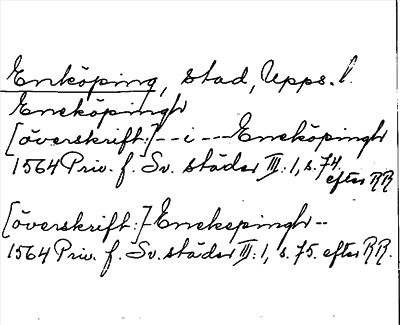 Enköping, stad, Upps. l.
Eneköpingh
[överskrift:] -- i --- Eneköpingh
1564 Priv. f. Sv. städer III: 1, s. 74.
efter RR
[överskrift:] Enekepingh --
1564 Priv. f. Sv. städer III: 1, s. 75. efter RR.